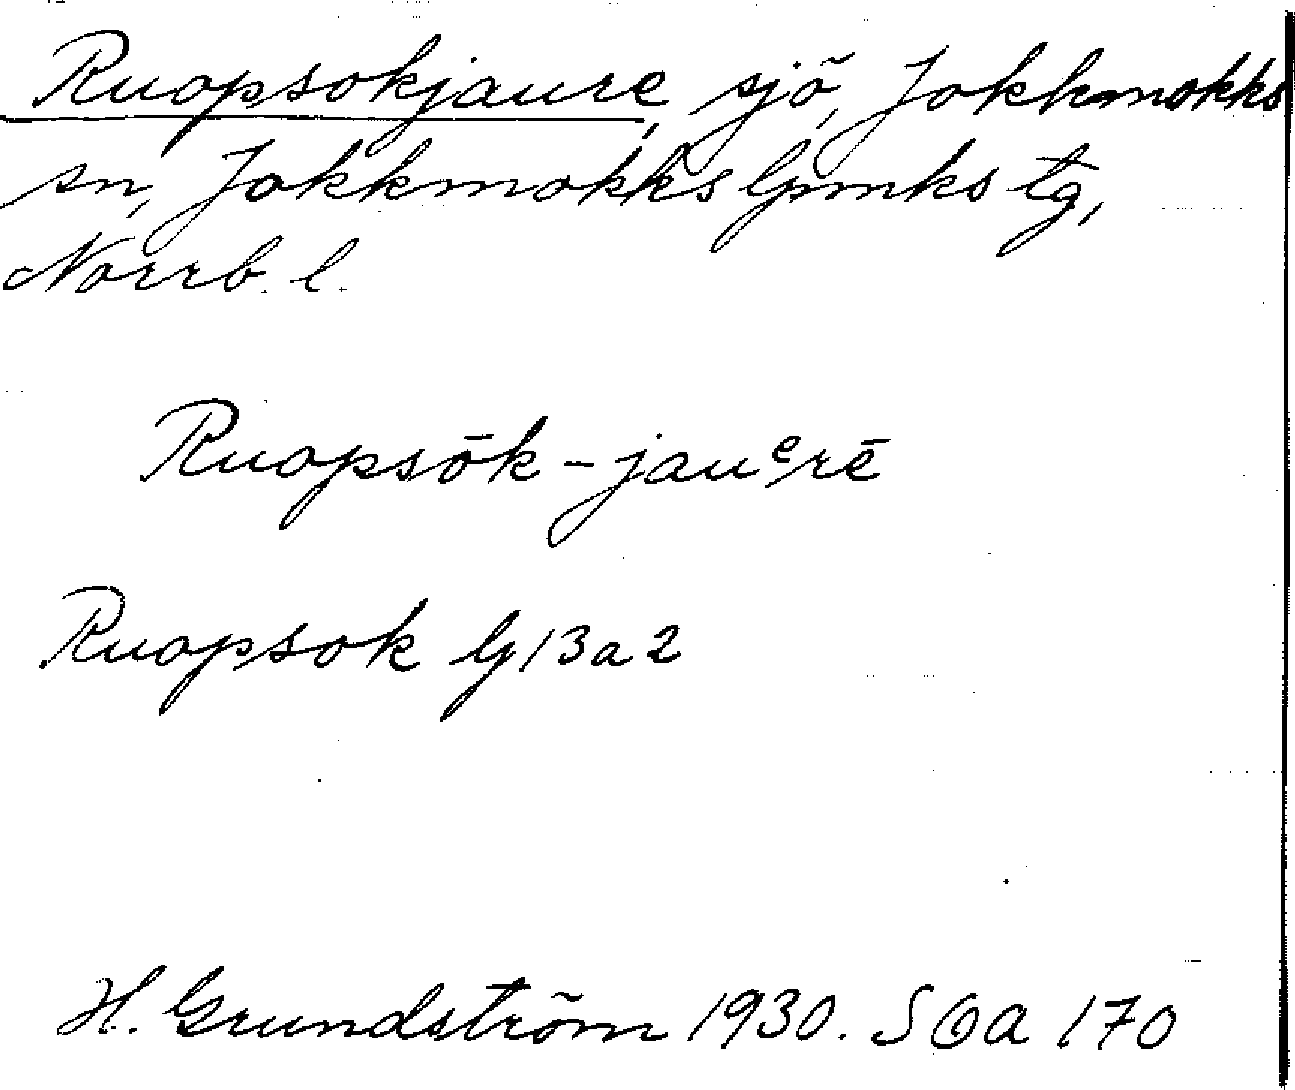 Ruopsokjaure, sjö, Jokkmokks
sn, Jokkmokks lpmks tg,
Norrb. l.
Ruopsōk-jauᵉrē
Ruopsok G13a2
H. Grundström 1930. SOA 170